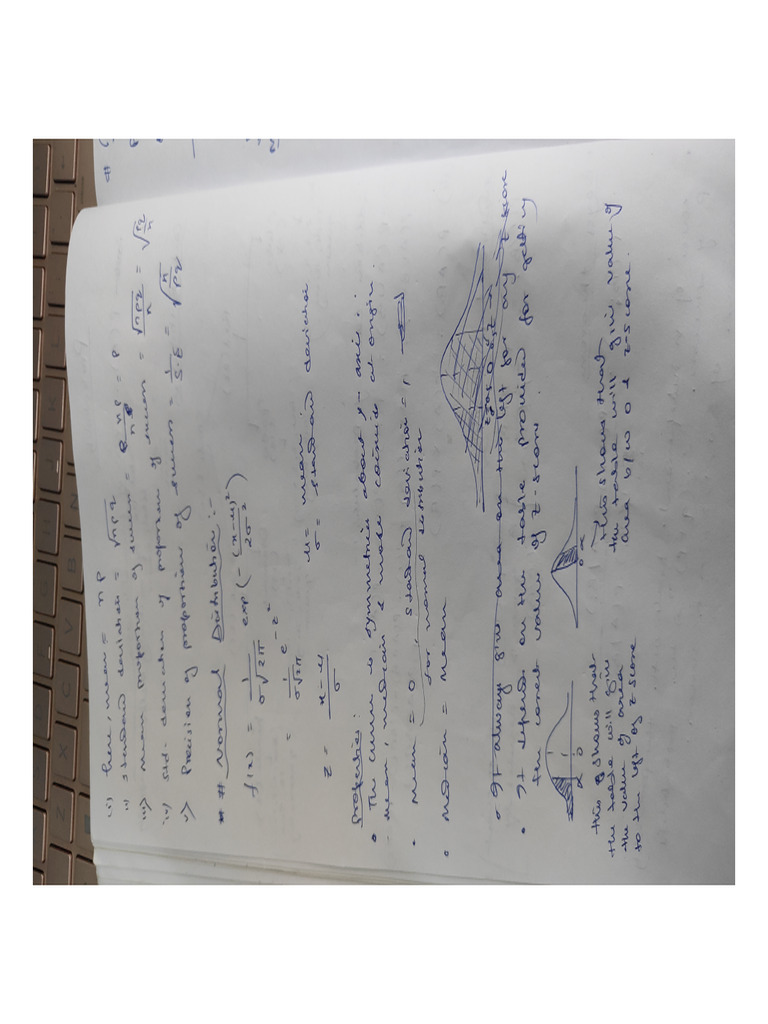 (i) here, mean = np
ii) standard deviation = √npq
iii) mean proportion of success = np/n = p
iv) std. deviation of proportion of success = √npq/n = √pq/n
v) Precision of proportion of success = 1/S.E = √n/pq
# Normal Distribution :-
f(x) = 1/σ√2π exp(-(x-μ)²/2σ²)
= 1/σ√2π e^-z²
μ = mean
σ = standard deviation
z = x-μ/σ
Properties:
• The curve is symmetrical about y-axis.
- mean, median & mode coincide at origin.
• Mean = 0, standard deviation = 1
for normal distribution
• Median = Mean
• It always give area on the left for any z-score
• It depends on the table provided for getting
the correct value of z-score.
α 0
0 α
this shows that
the table will give
the value of area
to the left of z-score
This shows that
the table will give value of
area b/w 0 & z-score.